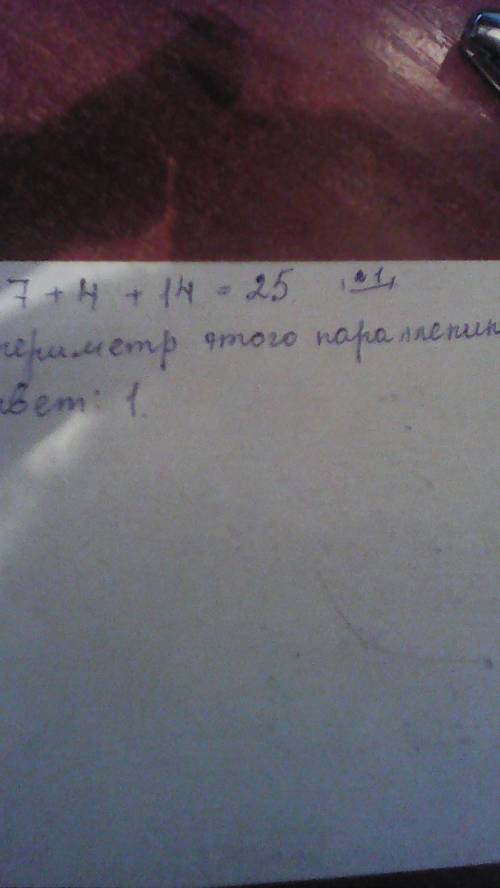 7 + 4 + 14 = 25. №1
периметр этого параллепип
твет: 1.